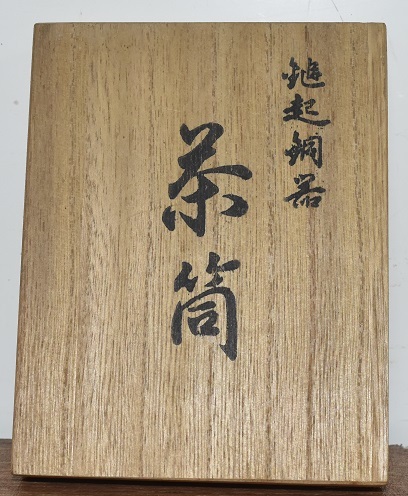 鎚起銅器
茶筒